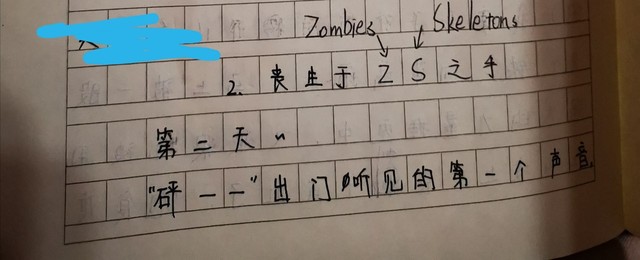 Zombies Skeletons
2. 丧生于ZS之手
第二天~
"砰——"出门听见的第一个声音